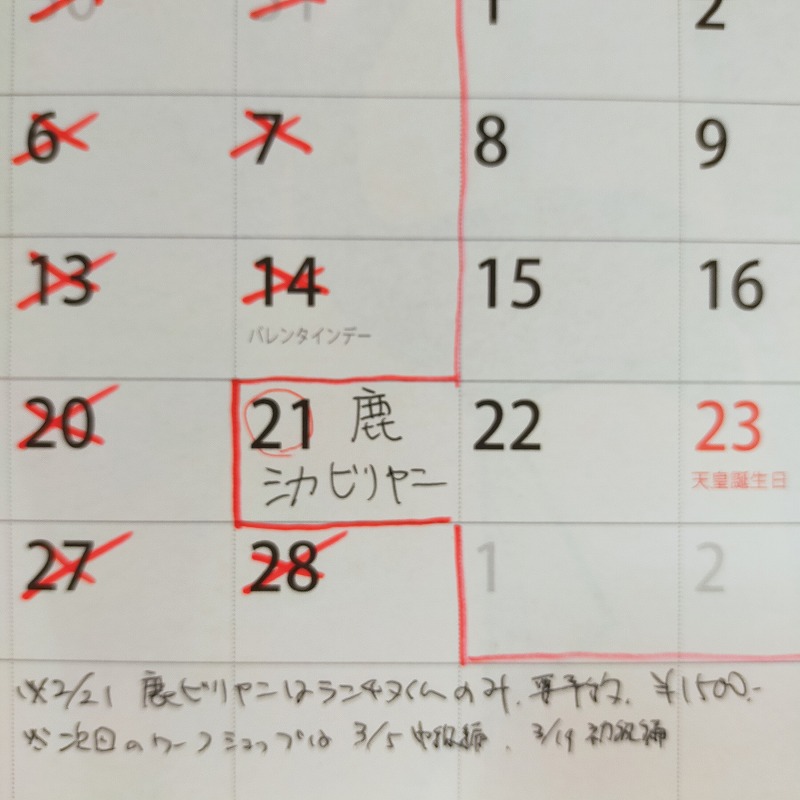 1 2
6 7 8 9
13 14 15 16
バレンタインデー
20 21 鹿 22 23
ミカビリヤニ 天皇誕生日
27 28 1 2
※2/21 鹿ビリヤニはランチタイムのみ、要予約、¥1500.-
※次回のワークショップは 3/5 中級編、3/19 初級編